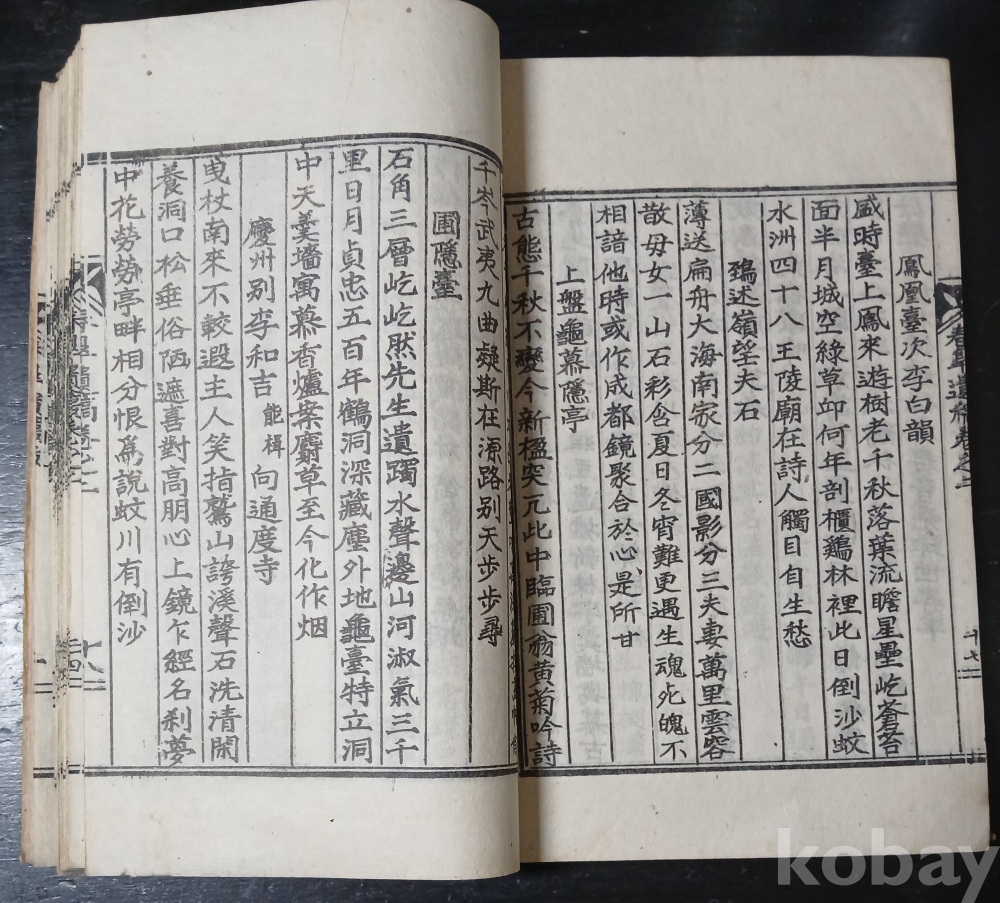 鳳凰臺次李白韻
盛時臺上鳳來遊樹老千秋落葉流瞻星壘屹蒼苔
面半月城空綠草邱何年剖櫃鷄林裡此日倒沙蚊
水洲四十八王陵廟在詩人觸目自生愁
鵄述嶺望夫石
薄送扁舟大海南家分二國影分三夫妻萬里雲容
散母女一山石彩含夏日冬宵難更遇生魂死魄不
相諳他時或作成都鏡聚合於心是所甘
上盤龜慕隱亭
古態千秋不變今新楹突兀此中臨圃翁黃菊吟詩
千岑武夷九曲疑斯在源路別天步步尋
圃隱臺
石角三層屹屹然先生遺躅水聲邊山河淑氣三千
里日月貞忠五百年鶴洞深藏塵外地龜臺特立洞
中天羹墻寓慕香爐案麝草至今化作烟
慶州別李和吉能楫向通度寺
曳杖南來不較遐主人笑指鷲山誇溪聲石洗清閒
養洞口松垂俗陋遮喜對高朋心上鏡乍經名刹夢
中花勞勞亭畔相分恨爲說蚊川有倒沙
十七
十八
kobay